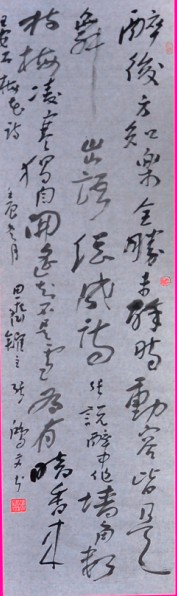 醉後方知樂全勝未醉時動容皆是
舞出語總成詩張說醉中作墻角數
枝梅凌寒獨自開遙知不是雪為有暗香來
王安石梅花詩